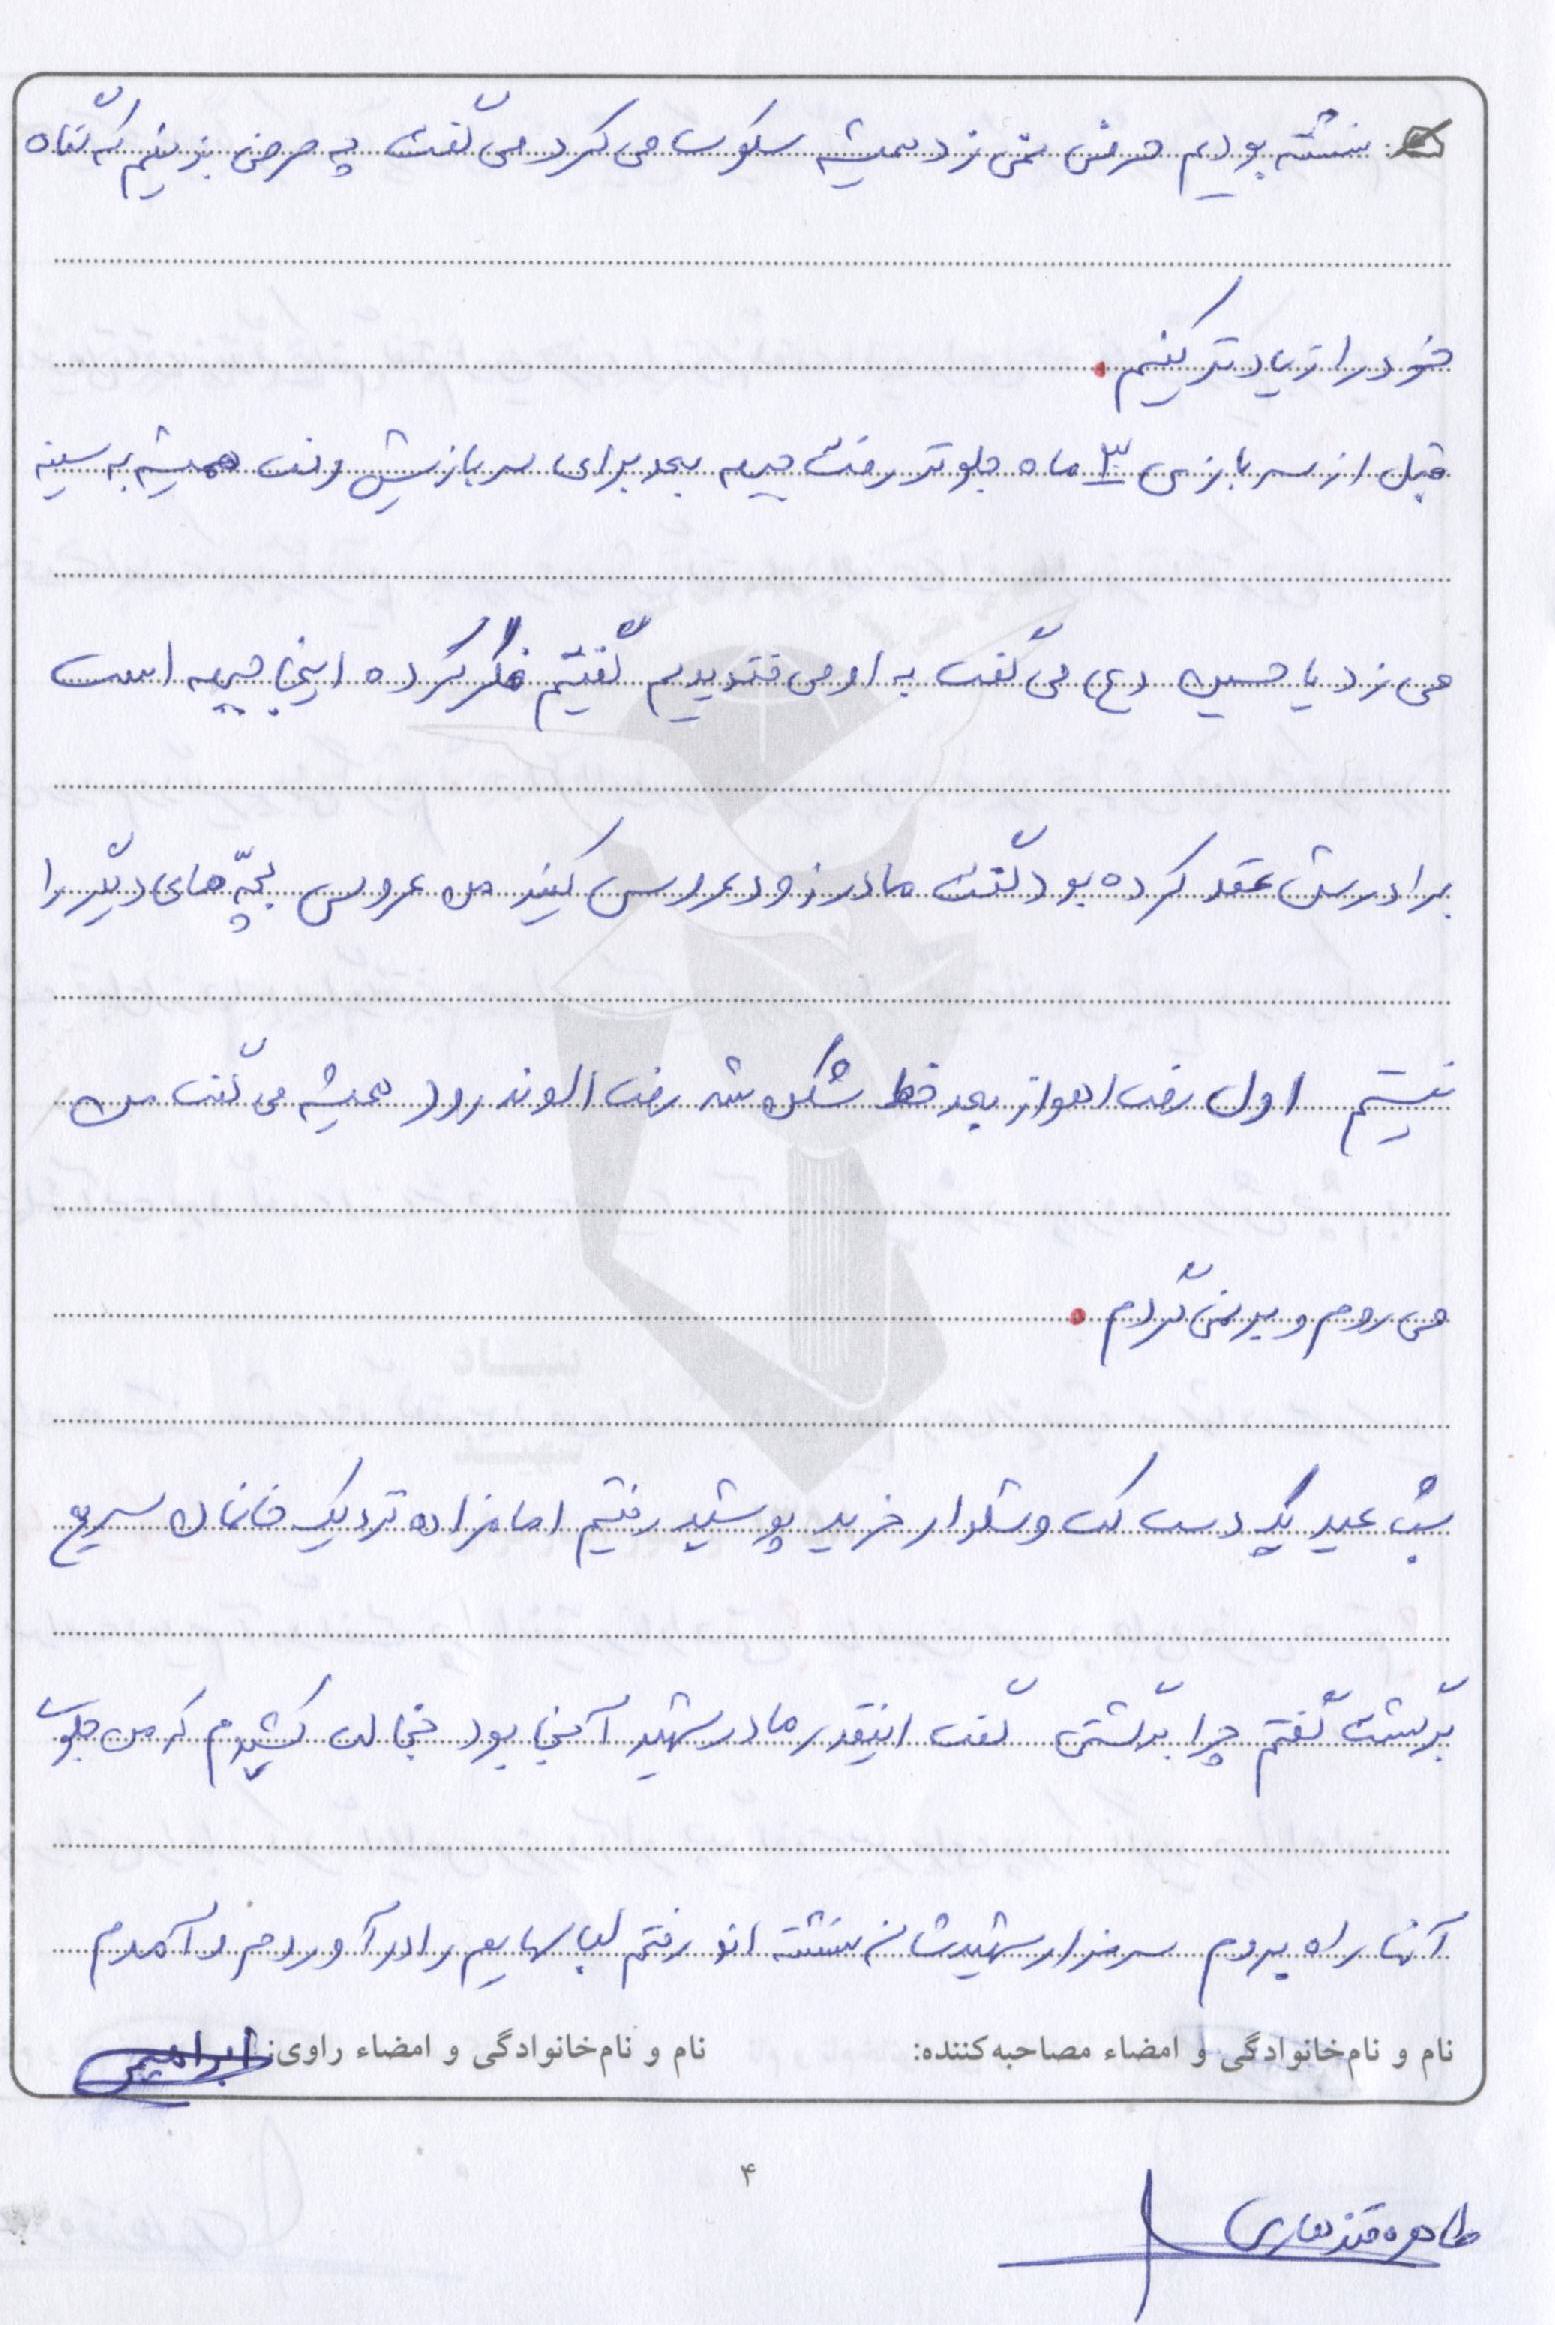 نشسته بودیم حرف نمی زد همیشه سکوت می کرد می گفت چه حرفی بزنیم که گناه
خود را زیادتر کنیم .
قبل از سربازی ۳ ماه جلوتر رفت جبهه بعد برای سربازیش رفت همیشه به سینه
می زد یا حسین (ع) می گفت به او می خندیدیم گفتیم فکر کرده اینجا جبهه است
برادرش عقد کرده بود گفت مادر زود عروسی کنید من عروسی بچّه های دیگر را
نیستم اول رفت اهواز بعد خط شکن شد رفت الوند رود همیشه می گفت من
می روم و بر نمی گردم .
شب عید یک دست کت و شلوار خرید پوشید رفتیم امامزاده نزدیک خانمان سریع
برگشت گفتم چرا برگشتی گفت اینقدر مادر شهید آنجا بود خجالت کشیدم که من جلوی
آنها راه بروم سر مزار شهیدشان نشسته اند رفتم لباسهایم را در آوردم و آمدم
نام و نام‌خانوادگی و امضاء مصاحبه‌کننده: نام و نام‌خانوادگی و امضاء راوی: ابراهیمی
۴
طاهره قندهاری